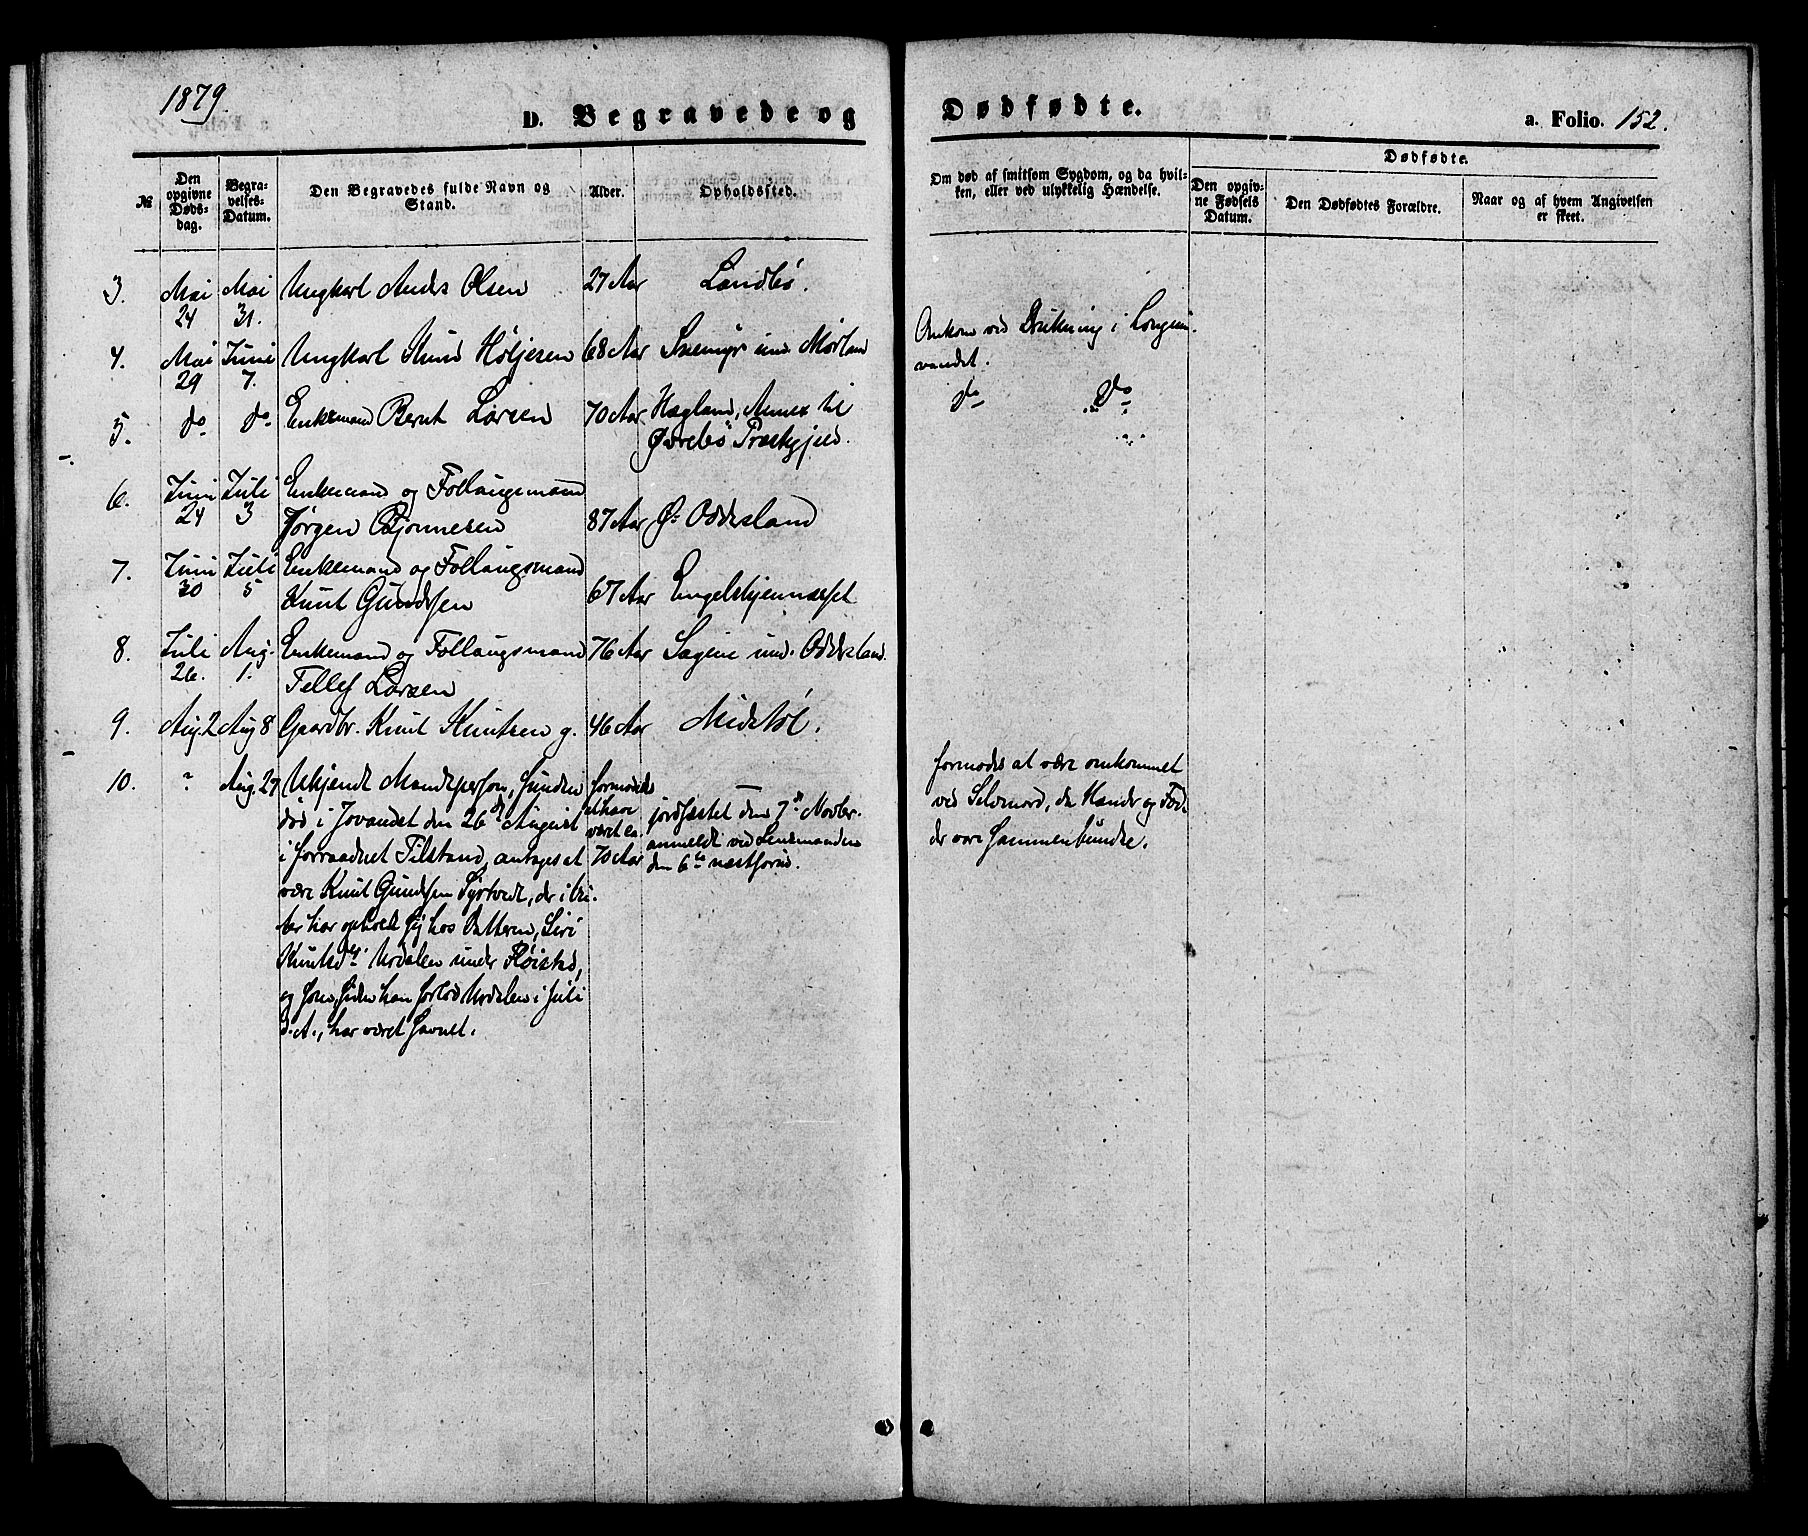 1879.
D. Begravede og Dødfødte.
a. Folio. 152.
№
Den opgivne Døds-dag.
Begra-velses-Datum.
Den Begravedes fulde Navn og Stand.
Alder.
Opholdssted.
Om død af smitsom Sygdom, og da hvil-
ken, eller ved ulykkelig Hændelse.
Dødfødte.
Den opgiv-ne Fødsels Datum.
Den Dødfødtes Forældre.
Naar og af hvem Angivelsen er skeet.
3. Mai 24 Mai 31. Ungkarl Anders Olsen 27 Aar Landbø.
4. Mai 29 Juni 7. Ungkarl Knud Høljesen 68 Aar und. Mørland
Omkom ved Drukning i
vandet.
5. do do Enkemand Bernt Larsen 70 Aar Hægland, Annex til
Øvrebø Præstegjeld.
do do
6. Juni 24 Juli 3 Enkemand og Follaugsmand
Jørgen Bjonnesen 87 Aar Ø. Oddesland
7. Juni 30 Juli 5 Enkemand og Follaugsmand
Knut Gundersen 67 Aar
8. Juli 26. Aug. 1. Enkemand og Follaugsmand 76 Aar Sagene und. Oddesland.
Tellef Larsen
9. Aug. 2 Aug 8 Gaardbr. Knut Knutsen g. 46 Aar Midstøl.
10. ? Aug. 27 Ukjendt Mandsperson, funden
død i Jovandet den 26de August
i forraadnet Tilstand, antages at
være Knut Gundersen Syrtvedt, der i
har opholdt sig hos Datteren, Siri
Knutsdtr Urdalen under Røisted,
og som, siden han forlod Urdalen i Juli
d. A., har været savnet.
formodes
at have
været ca.
70 Aar
—
jordfæstet den 7de Novbr.
anmeldt ved Lensmanden
den 6te næstforud.
formodes at være omkommet
ved Selvmord, da Hænder og Fød-
der vare sammenbundne.